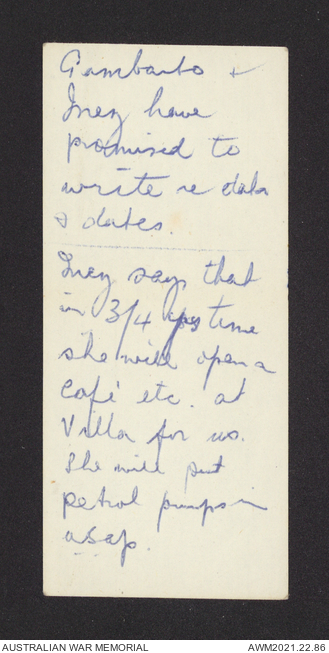 Gambarto +
Inez have
promised to
write re data
& dates.
Inez says that
in 3/4 yrs time
she will open a
café etc. at
Villa for us.
She will put
petrol pumps in
asap.
AUSTRALIAN WAR MEMORIAL
AWM2021.22.86